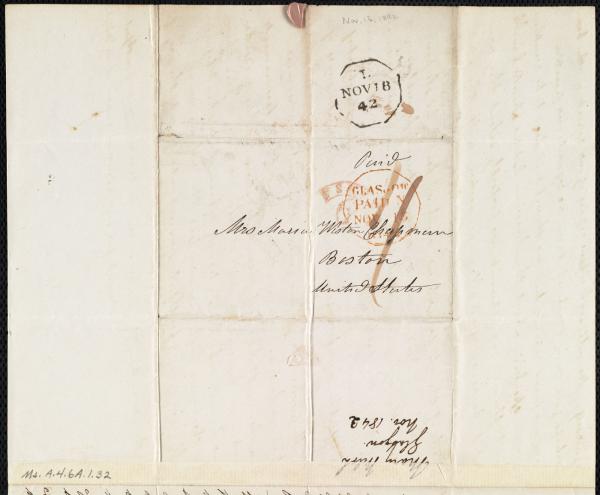 Nov. 15, 1842
L
NOV 18
42
Paid
GLASGOW
PAID
NOV 15
Mrs Maria Weston Chapman
Boston
United States
Glasgow
Nov. 1842
Ms. A.4.6A.1.32